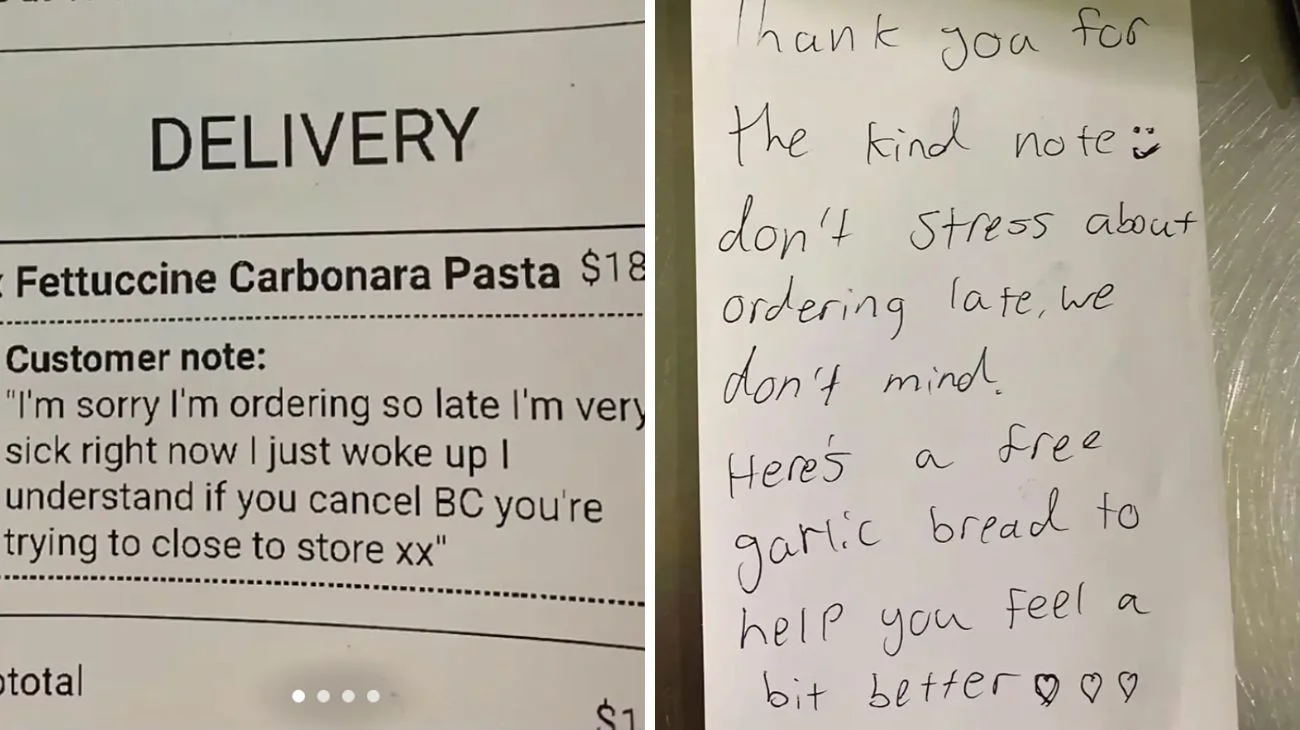 DELIVERY
Fettuccine Carbonara Pasta $18
Customer note:
"I'm sorry I'm ordering so late I'm very
sick right now I just woke up I
understand if you cancel BC you're
trying to close to store xx"
$1
Thank you for
the kind note
don't stress about
ordering late, we
don't mind.
Here's a free
garlic bread to
help you feel a
bit better ♡ ♡ ♡